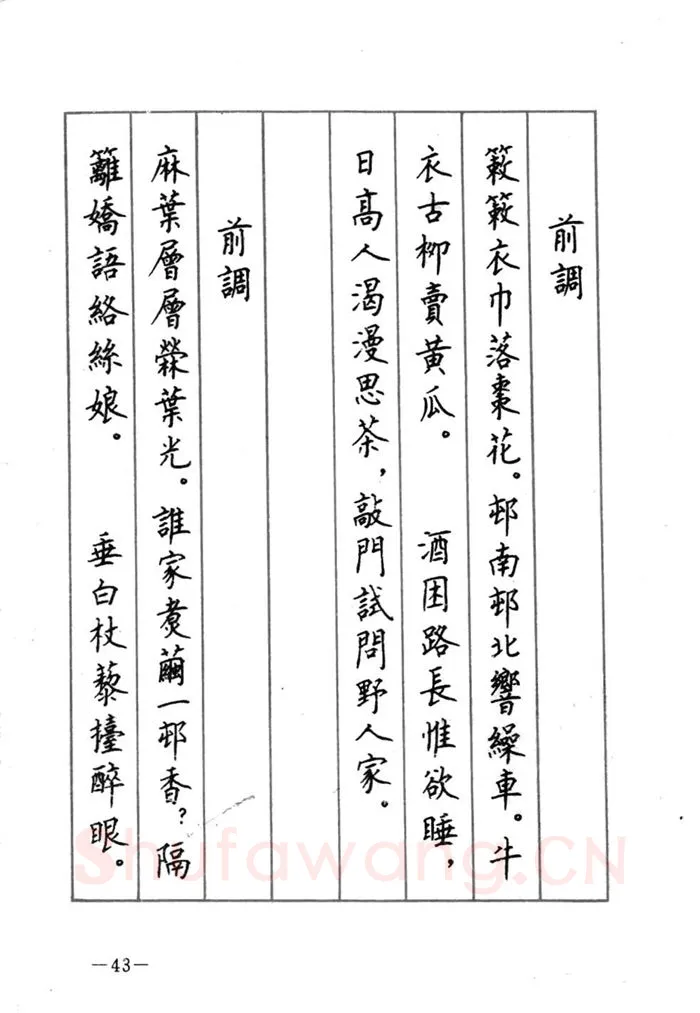 前調
簌簌衣巾落棗花。邨南邨北響繰車。牛
衣古柳賣黃瓜。　　酒困路長惟欲睡，
日高人渴漫思茶，敲門試問野人家。
前調
麻葉層層檾葉光。誰家煑繭一邨香？隔
籬嬌語絡絲娘。　　垂白杖藜擡醉眼。
Shufawang.CN
—43—